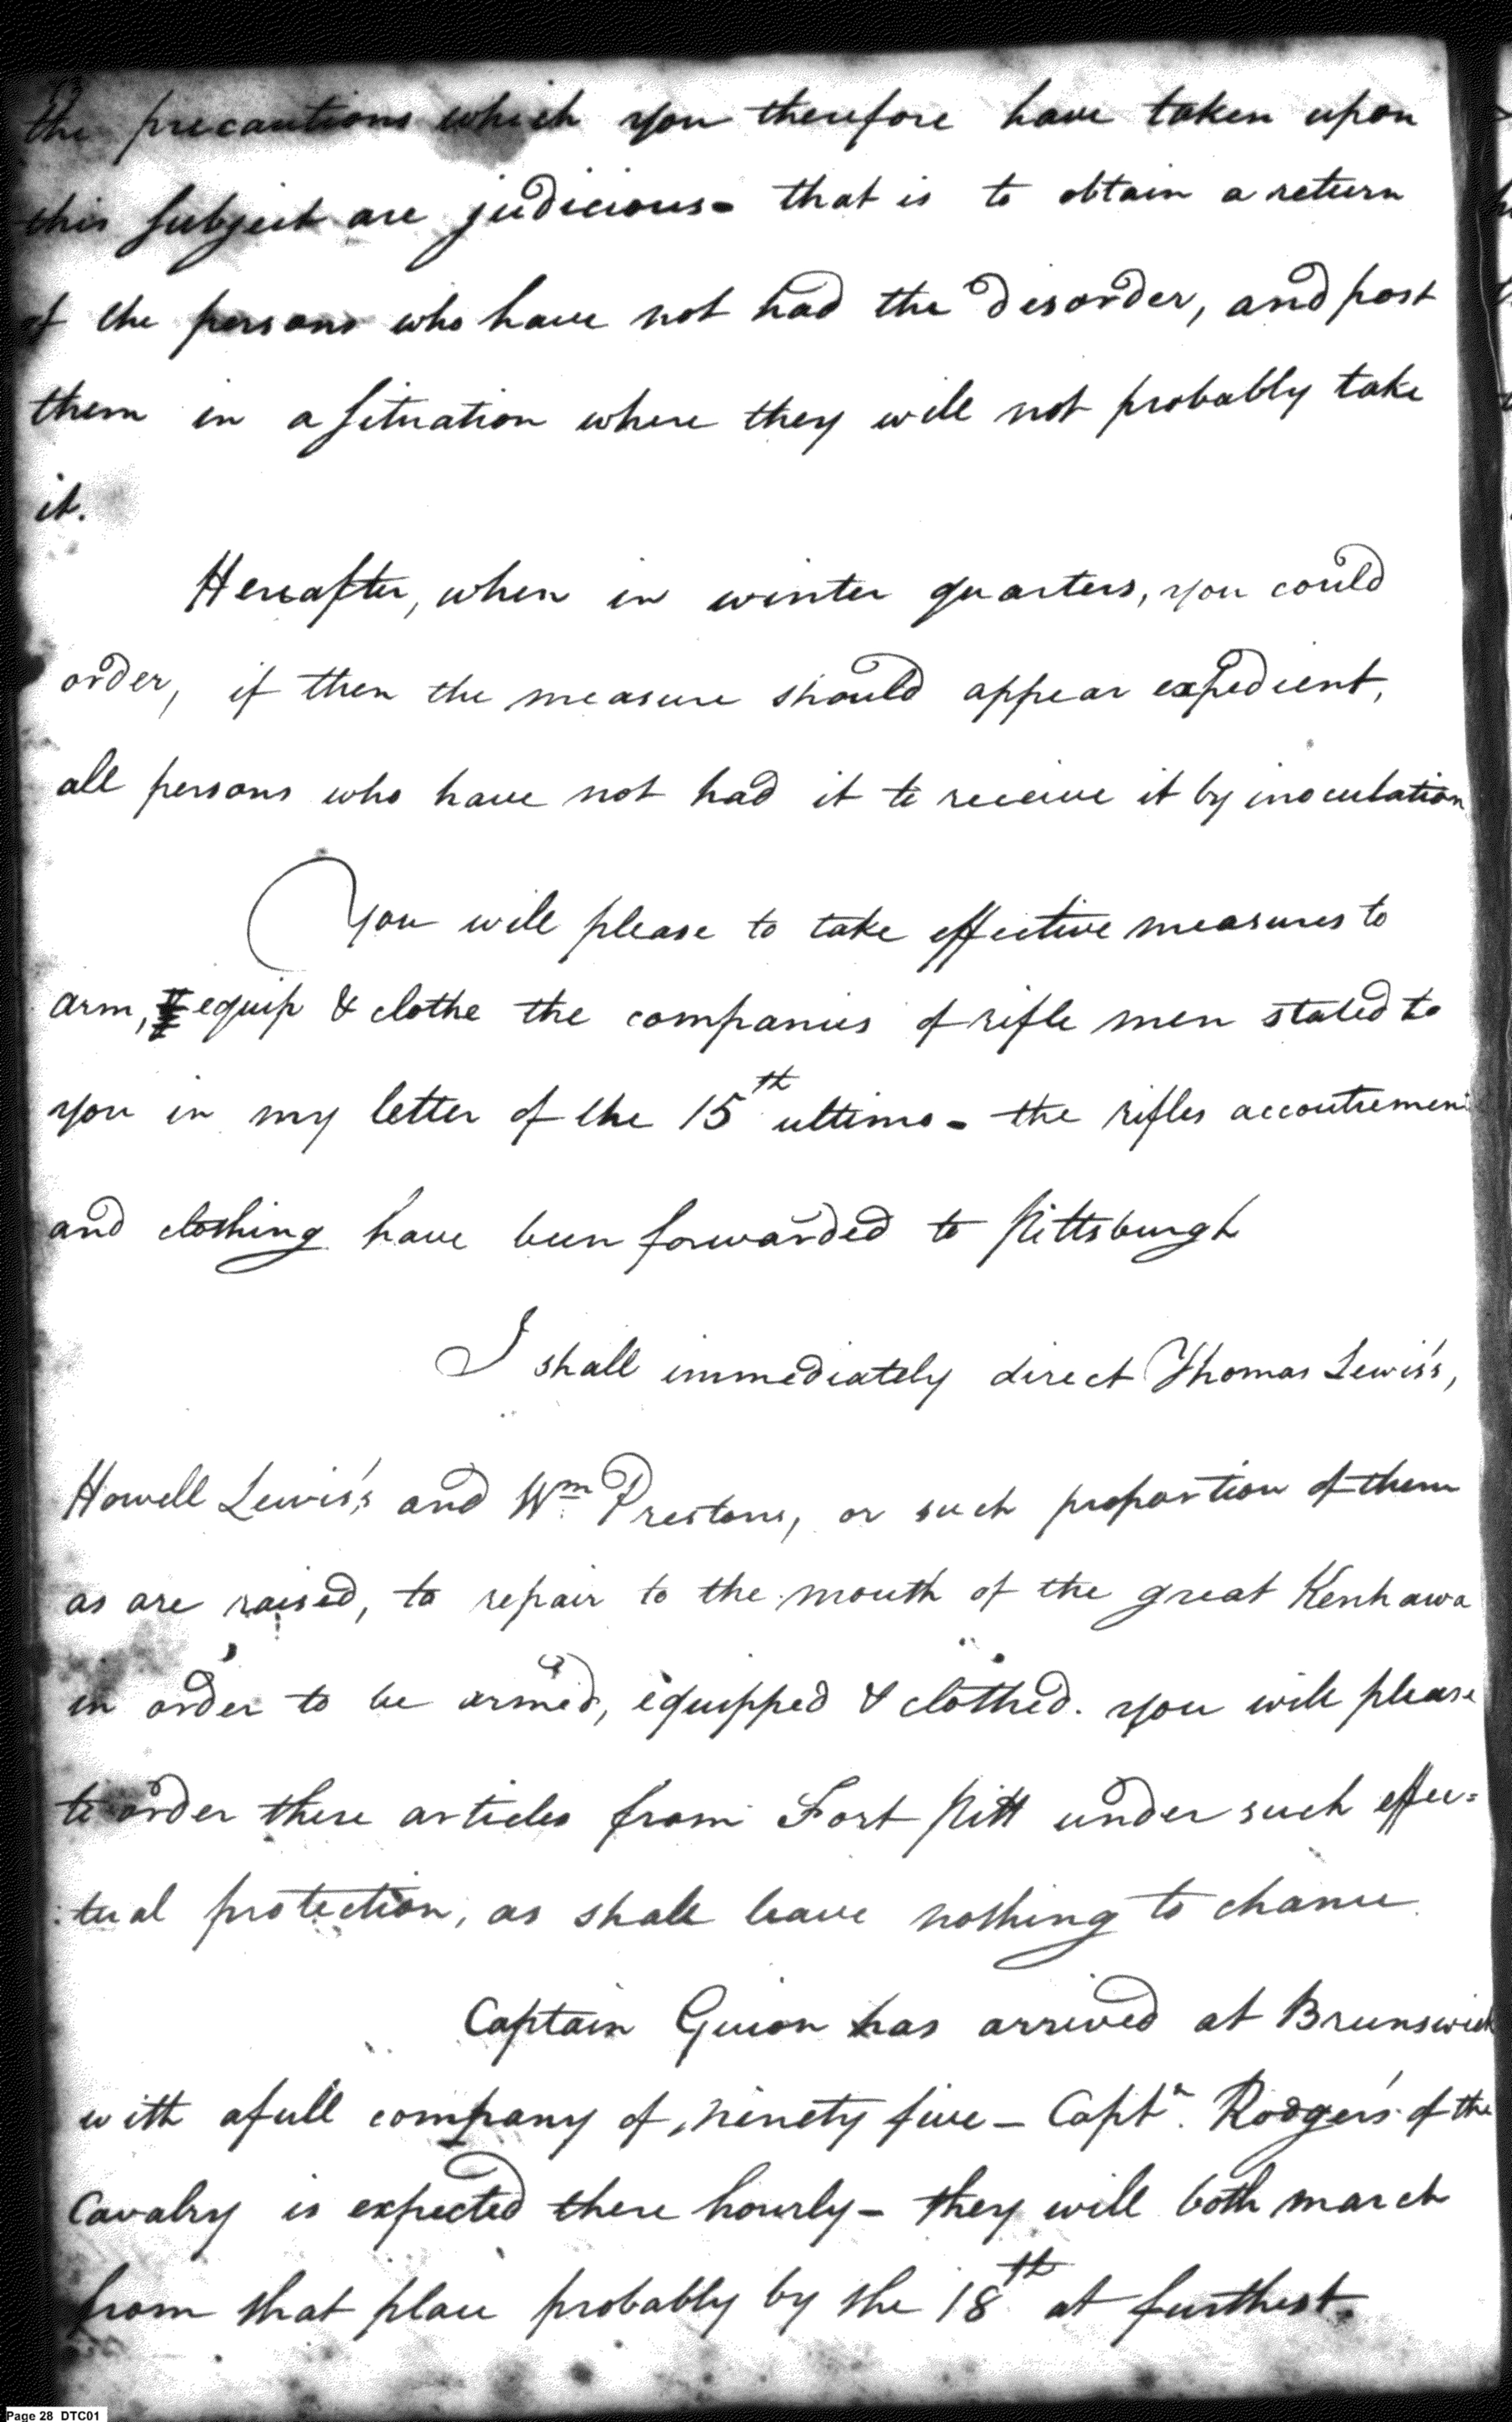 the precautions which you therefore have taken upon
this subject are judicious - that is to obtain a return
of the persons who have not had the disorder, and post
them in a situation where they will not probably take
it.
Hereafter, when in winter quarters, you could
order, if then the measure should appear expedient,
all persons who have not had it to receive it by inoculation
You will please to take effective measures to
arm, equip & clothe the companies of rifle men stated to
you in my letter of the 15th ultimo - the rifles accoutrement
and clothing have been forwarded to Pittsburgh
I shall immediately direct Thomas Lewis's,
Howell Lewis's and Wm Prestons, or such proportion of them
as are raised, to repair to the mouth of the great Kenhawa
in order to be armed, equipped & clothed. you will please
to order these articles from Fort Pitt under such effec=
tual protection, as shall leave nothing to chance
Captain Guion has arrived at Brunswick
with a full company of ninety five - Captn. Rodger's of the
Cavalry is expected there hourly - they will both march
from that place probably by the 18th at furthest.
Page 28 DTC01